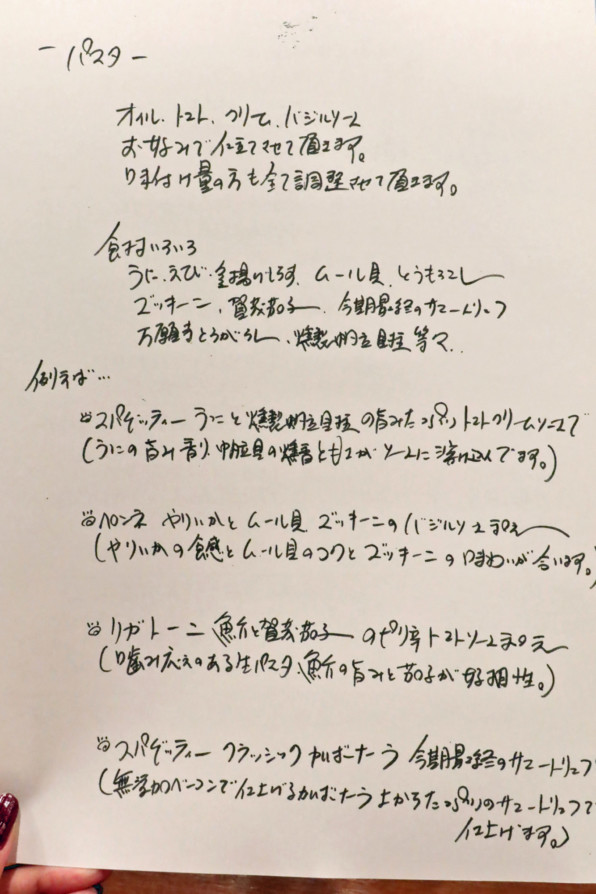 －パスタ－
オイル、トマト、クリーム、バジルソース
お好みで仕立てさせて頂きます。
味付け量の方も全て調整させて頂きます。
食材いろいろ
うに、えび、釜揚げしらす、ムール貝、とうもろこし
ズッキーニ、賀茂茄子、今期最終のサマートリュフ
万願寺とうがらし、燻製帆立貝柱 等々..
例えば…
スパゲッティー うにと燻製帆立貝柱の旨みたっぷりトマトクリームソースで
(うにの旨み香り、帆立貝の燻香ともにがソースに溶け込んでます。)
ペンネ やりいかとムール貝 ズッキーニのバジルソース和え
(やりいかの食感とムール貝のコクとズッキーニの味わいが合います。)
リガトーニ 魚介と賀茂茄子のピリ辛トマトソース和え
(噛み応えのある生パスタ、魚介の旨みと茄子が好相性。)
スパゲッティー クラッシックかるぼなーら 今期最終のサマートリュフ
(無添加ベーコンで仕上げるかるぼなーら 上からたっぷりのサマートリュフで
仕上げます。)